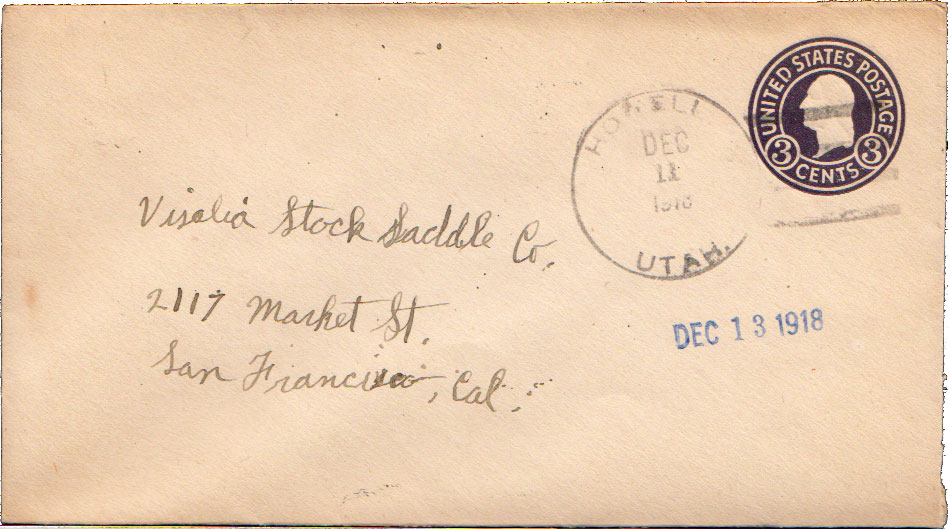 UNITED STATES POSTAGE
3 CENTS 3
HOWELL
DEC
11
1918
UTAH.
Visalia Stock Saddle Co.
2117 Market St.
San Francisco, Cal.
DEC 13 1918